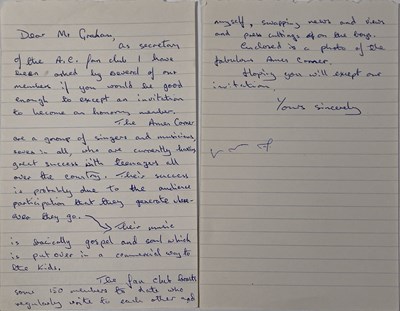 Dear Mr Graham,
as secretary
of the A.C. fan club I have
been asked by several of our
members if you would be good
enough to except an invitation
to become an honorary member.
The Amen Corner
are a group of singers and musicians,
seven in all, who are currently having
great success with teenagers all
over the country. Their success
is probably due to the audience
participation that they generate where-
ever they go.
Their music
is basically gospel and soul which
is put over in a commercial way to
the kids.
The fan club boasts
some 150 members to date who
regularly write to each other and
myself, swapping news and views
and press cuttings of on the boys.
Enclosed is a photo of the
fabulous Amen Corner.
Hoping you will except our
invitation.
Yours sincerely